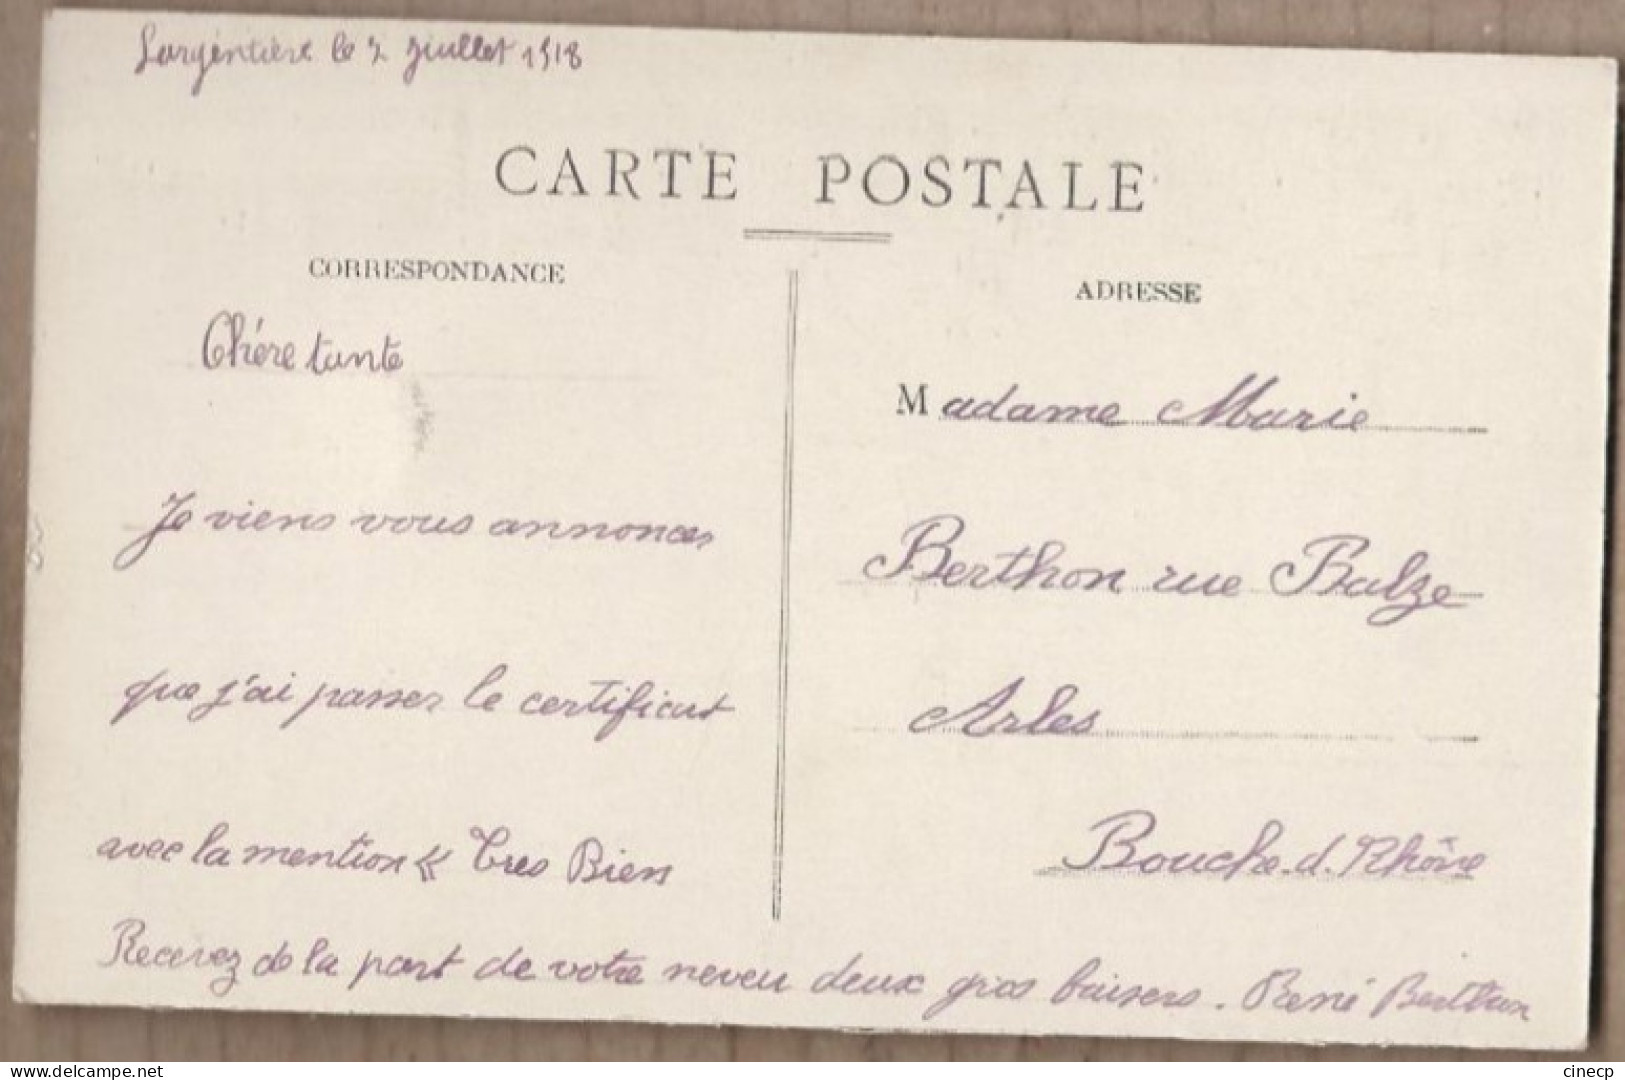 Largentière le 2 Juillet 1918
CARTE POSTALE
CORRESPONDANCE
Chére tante
Je viens vous annoncer
que j'ai passer le certificat
avec la mention « Tres Bien
Recevez de la part de votre neveu deux gros baisers. René Berthon
ADRESSE
Madame Marie
Berthon rue Balze
Arles
Bouche.d.Rhône
delcampe.net
cinecp